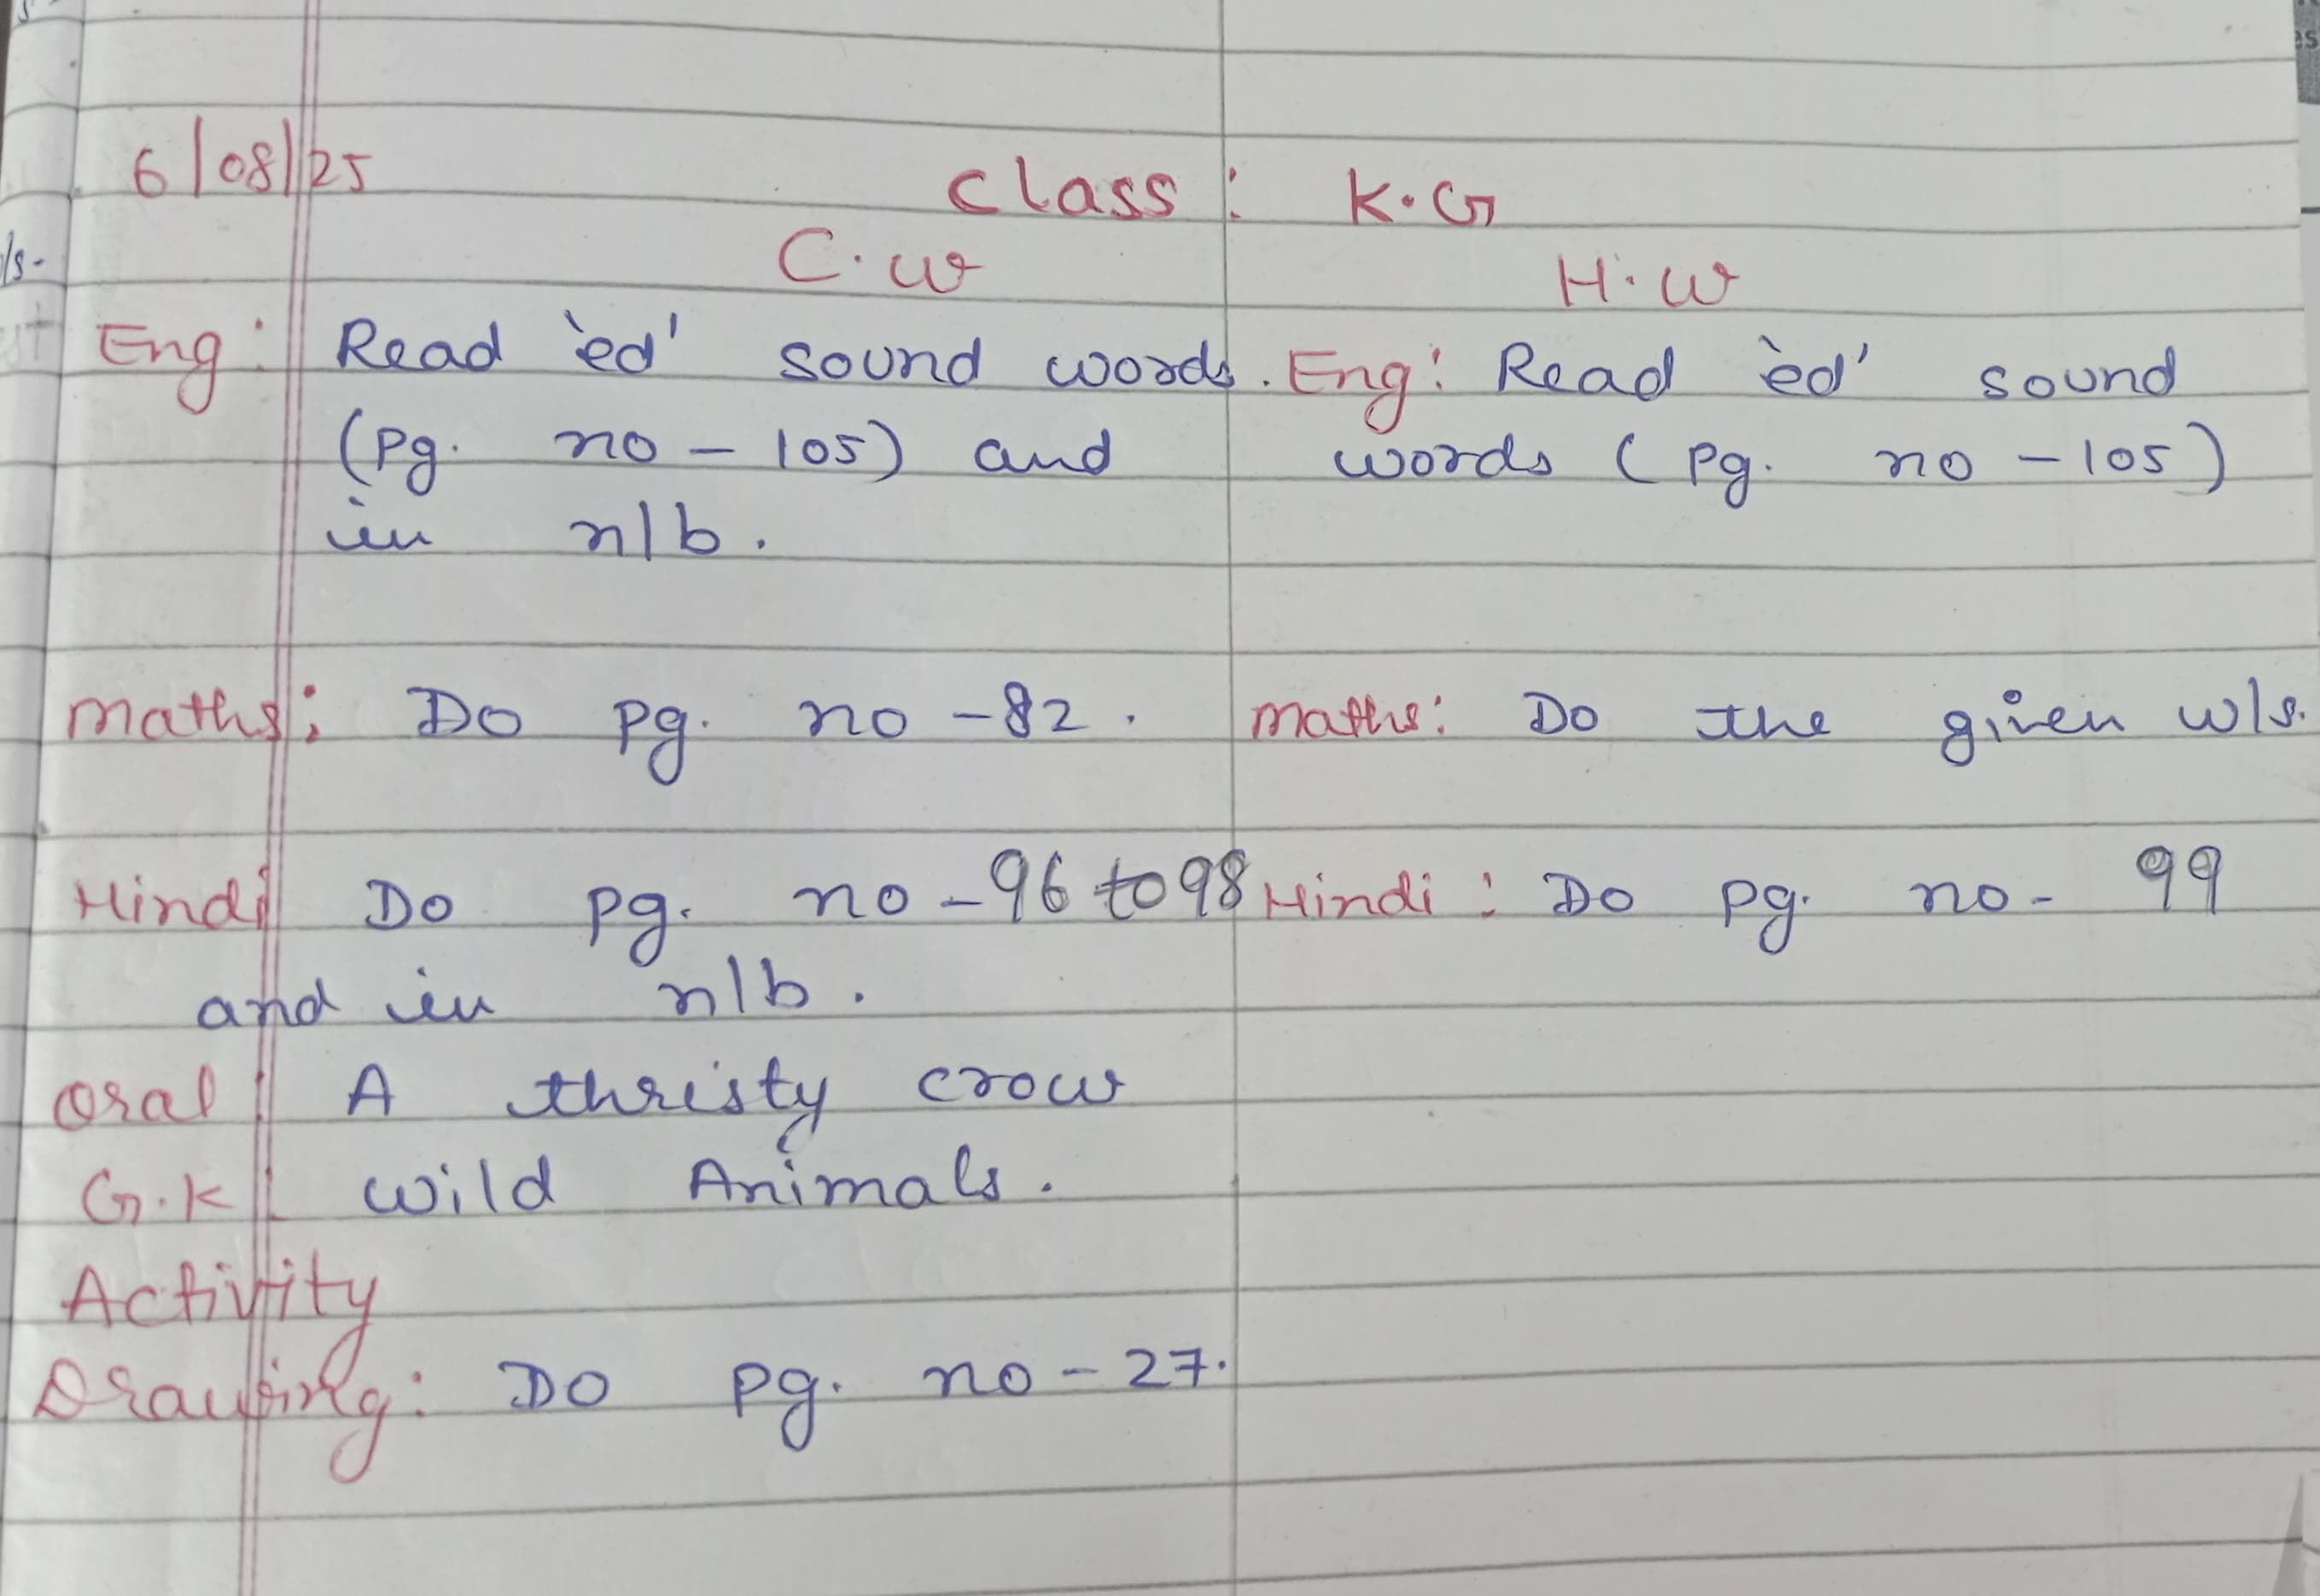 6/08/25
Class : K.G
C.W
H.W
Eng: Read 'ed' sound words.
(Pg. no - 105) and
in n/b.
Eng: Read 'ed' sound
words (Pg. no - 105)
Maths: Do Pg. no - 82.
Maths: Do the given w/s.
Hindi Do Pg. no - 96 to 98
and in n/b.
Hindi : Do Pg. no - 99
Oral : A thristy crow
G.K : Wild Animals.
Activity
Drawing: Do Pg. no - 27.
/s.